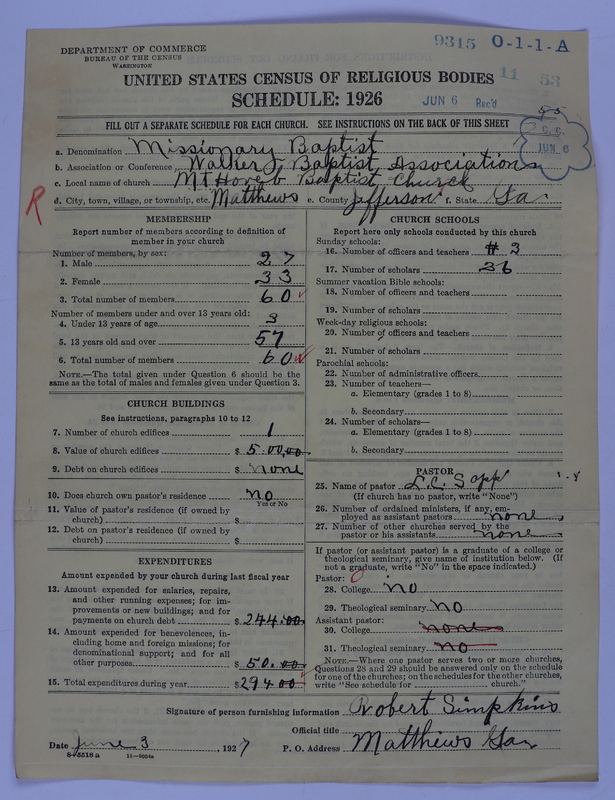 9315 O-1-1-A
DEPARTMENT OF COMMERCE
BUREAU OF THE CENSUS
WASHINGTON
UNITED STATES CENSUS OF RELIGIOUS BODIES 11 53
SCHEDULE: 1926 JUN 6 Rec'd
55
FILL OUT A SEPARATE SCHEDULE FOR EACH CHURCH. SEE INSTRUCTIONS ON THE BACK OF THIS SHEET
JUN 6
a. Denomination Missionary Baptist
b. Association or Conference Walker Baptist Associations
c. Local name of church MT Horeb Baptist Church
d. City, town, village, or township, etc. Matthews e. County Jefferson f. State Ga
R
MEMBERSHIP
Report number of members according to definition of member in your church
Number of members, by sex:
1. Male 27
2. Female 33
3. Total number of members 60
Number of members under and over 13 years old:
4. Under 13 years of age 3
5. 13 years old and over 57
6. Total number of members 60
NOTE.—The total given under Question 6 should be same as the total of males and females given under Question 3.
CHURCH BUILDINGS
See instructions, paragraphs 10 to 12
7. Number of church edifices 1
8. Value of church edifices $ 500.00
9. Debt on church edifices $ none
10. Does church own pastor's residence no
Yes or No
11. Value of pastor's residence (if owned by church) $
12. Debt on pastor's residence (if owned by church) $
EXPENDITURES
Amount expended by your church during last fiscal year
13. Amount expended for salaries, repairs, and other running expenses; for improvements or new buildings; and for payments on church debt $ 244.00
14. Amount expended for benevolences, including home and foreign missions; for denominational support; and for all other purposes $ 50.00
15. Total expenditures during year $ 294.00
CHURCH SCHOOLS
Report here only schools conducted by this church
Sunday schools:
16. Number of officers and teachers # 3
17. Number of scholars 36
Summer vacation Bible schools:
18. Number of officers and teachers
19. Number of scholars
Week-day religious schools:
20. Number of officers and teachers
21. Number of scholars
Parochial schools:
22. Number of administrative officers
23. Number of teachers—
a. Elementary (grades 1 to 8)
b. Secondary
24. Number of scholars—
a. Elementary (grades 1 to 8)
b. Secondary
PASTOR
25. Name of pastor L.C. Sapp
(If church has no pastor, write "None")
26. Number of ordained ministers, if any, employed as assistant pastors none
27. Number of other churches served by the pastor or his assistants none
If pastor (or assistant pastor) is a graduate of a college or theological seminary, give name of institution below. (If not a graduate, write "No" in the space indicated.)
Pastor:
28. College no
29. Theological seminary no
Assistant pastor:
30. College none
31. Theological seminary no
NOTE.—Where one pastor serves two or more churches, Questions 28 and 29 should be answered only on the schedule for one of the churches; on the schedules for the other churches, write "See schedule for ........ church."
Signature of person furnishing information Robert Simpkins
Official title
Date June 3, 1927 P. O. Address Matthews Ga
8-5518 a 11-9054a